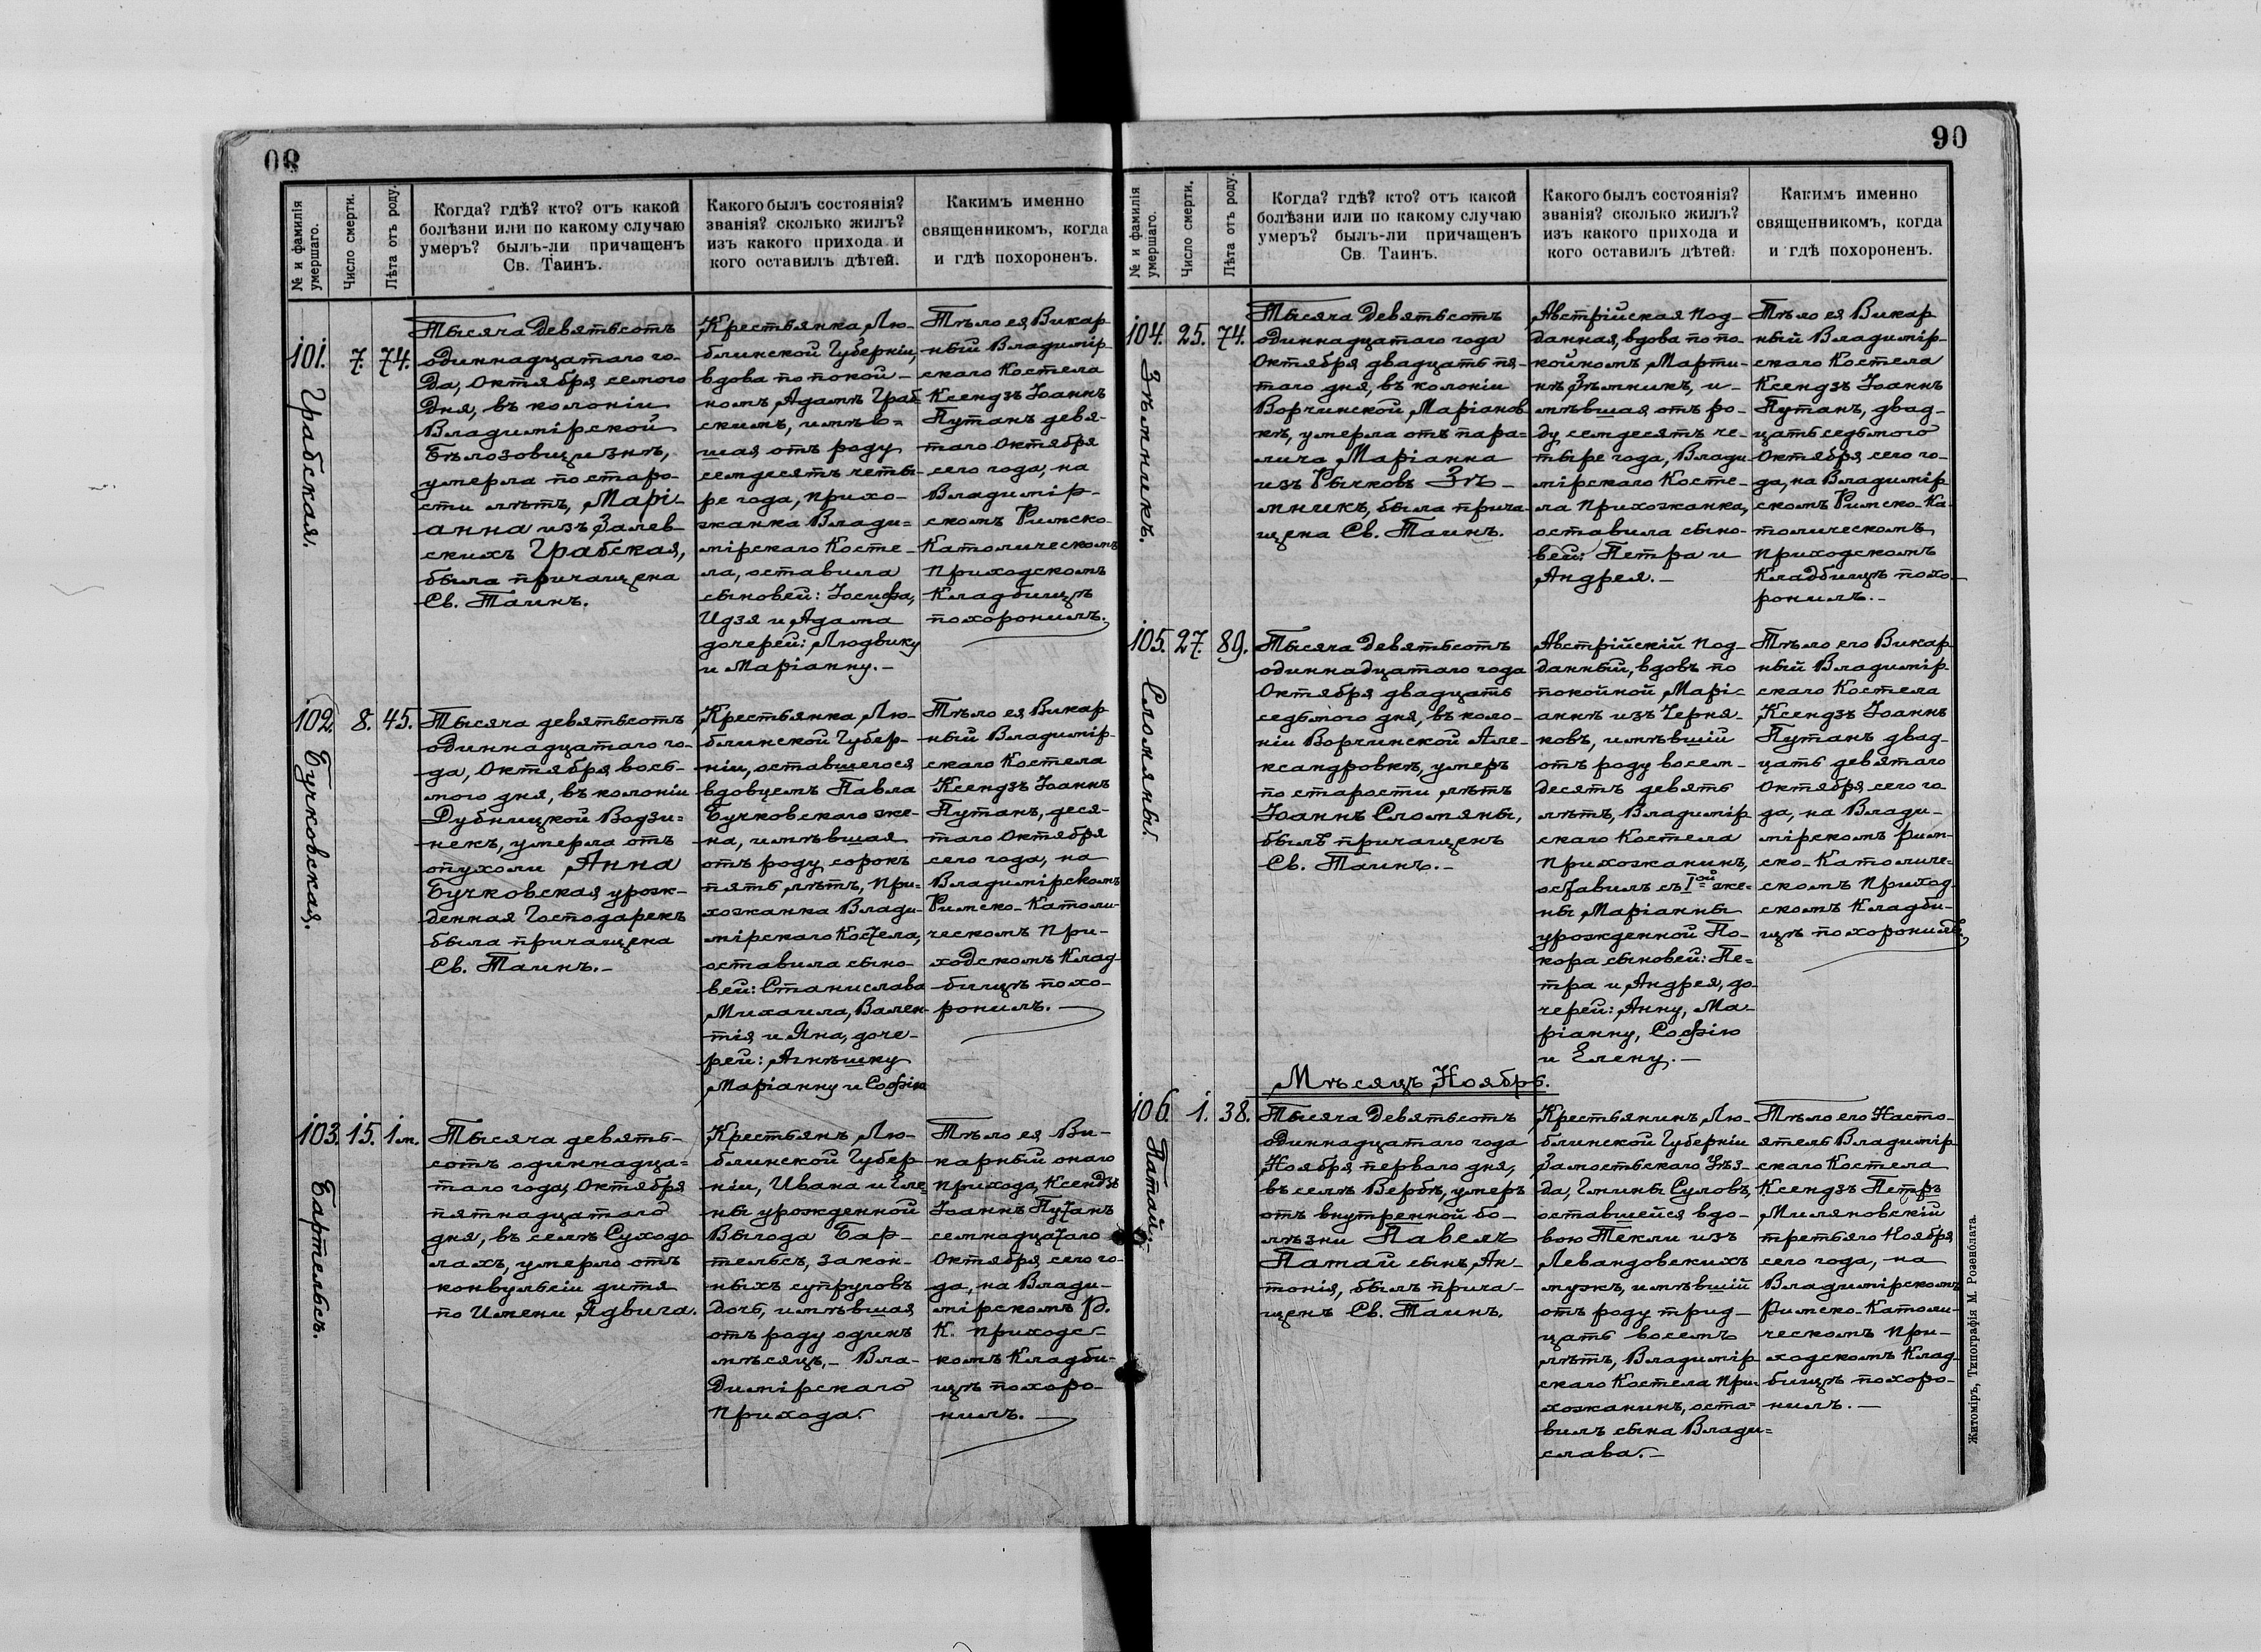 90
№ и фамилія
умершаго.
Число смерти.
Лѣта отъ роду.
Когда? гдѣ? кто? отъ какой
болѣзни или по какому случаю
умеръ? былъ-ли причащенъ
Св. Таинъ.
Какого былъ состоянія?
званія? сколько жилъ?
изъ какого прихода и
кого оставилъ дѣтей.
Какимъ именно
священникомъ, когда
и гдѣ похороненъ.
101.
Грабская.
7.
74.
Тысяча девятьсотъ
одиннадцатаго го-
да, Октября седмого
дня, въ колоніи
Владимірской
Бѣлозовщизнѣ,
умерла по старо-
сти лѣтъ, Марі-
анна изъ Залев-
скихъ Грабская,
была причащена
Св. Таинъ.
Крестьянка Лю-
блинской Губерніи,
вдова по покой-
номъ Адамѣ Граб-
скимъ, имѣв-
шая отъ роду
семдесятъ четы-
ре года, прихо-
жанка Влади-
мірскаго Косте-
ла, оставила
сыновей: Іосифа,
Идзя и Адама
дочерей: Людвику
и Маріанну.-
Тѣло ея Викар
ный Владимір-
скаго Костела
Ксендзъ Іоаннъ
Путанъ девя-
таго Октября
сего года, на
Владимір-
скомъ Римско-
Католическомъ
приходскомъ
Кладбищѣ
похоронилъ.
102.
Бучковская.
8.
45.
Тысяча девятьсотъ
одиннадцатаго го-
да, Октября вось-
мого дня, въ колоніи
Дубницкой Водзи-
некъ, умерла отъ
опухоли Анна
Бучковская урож-
денная Господарекъ
была причащена
Св. Таинъ.-
Крестьянка Лю-
блинской Губер-
ніи, оставшегося
вдовцемъ Павла
Бучковскаго же-
на, имѣвшая
отъ роду сорокъ
пять лѣтъ, при-
хожанка Влади-
мірскаго Костела,
оставила сыно-
вей: Станислава
Михаила, Вален-
тія и Яна, доче-
рей: Агнѣшку
Маріанну и Софію
Тѣло ея Викар
ный Владимір-
скаго Костела
Ксендзъ Іоаннъ
Путанъ, деся-
таго Октября
сего года, на
Владимірскомъ
Римско-Католи-
ческомъ При-
ходскомъ Клад-
бищѣ похо-
ронилъ.-
103.
Бартельсъ.
15.
1 м.
Тысяча девять-
сотъ одиннадца-
таго года, Октября
пятнадцатаго
дня, въ селѣ Суходо
лахъ, умерло отъ
конвульсіи дитя
по Имени Ядвига.
Крестьянъ Лю-
блинской Губер
ніи, Ивана и Еле-
ны урожденной
Выгода Бар-
тельсъ, закон-
ныхъ супруговъ
дочь, имѣвшая
отъ роду одинъ
мѣсяцъ,- Вла-
димірскаго
прихода.
Тѣло ея Ви-
карный онаго
прихода, Ксендзъ
Іоаннъ Путанъ
семнадцатаго
Октября сего го-
да, на Влади-
мірскомъ Р.
К. приходс-
комъ Кладби-
щѣ похоро-
нилъ.-
90
№ и фамилія
умершаго.
Число смерти.
Лѣта отъ роду.
Когда? гдѣ? кто? отъ какой
болѣзни или по какому случаю
умеръ? былъ-ли причащенъ
Св. Таинъ.
Какого былъ состоянія?
званія? сколько жилъ?
изъ какого прихода и
кого оставилъ дѣтей.
Какимъ именно
священникомъ, когда
и гдѣ похороненъ.
104.
Зѣмникъ.
25.
74.
Тысяча девятьсотъ
одиннадцатаго года
Октября двадцать пя-
таго дня, въ колоніи
Ворчинской Маріанов
кѣ, умерла отъ пара-
лича Маріанна
изъ Рычковъ Зѣ-
мникъ, была прича-
щена Св. Таинъ.
Австрійская под-
данная, вдова по по-
койномъ Марти-
нѣ Зѣмникъ, и-
мѣвшая отъ ро-
ду семдесятъ че-
тыре года, Влади-
мірскаго Косте-
ла прихожанка,
оставила сыно-
вей: Петра и
Андрея.-
Тѣло ея Викар
ный Владимір-
скаго Костела
Ксендзъ Іоаннъ
Путанъ, двад-
цать седьмого
Октября сего го-
да, на Владимір
скомъ Римско-Ка-
толическомъ
приходскомъ
Кладбищѣ похо-
ронилъ.-
105.
Сломяны.
27.
89.
Тысяча девятьсотъ
одиннадцатаго года
Октября двадцать
седьмого дня, въ коло-
ніи Ворчинской Але-
ксандровкѣ, умеръ
по старости лѣтъ
Іоаннъ Сломяны,
былъ причащенъ
Св. Таинъ.-
Австрійскій под-
данный, вдовъ по
покойной Марі-
аннѣ изъ Черня-
ковъ, имѣвшій
отъ роду восем-
десятъ девять
лѣтъ, Владимір
скаго Костела
прихожанинъ,
оставилъ съ Iой же-
ны, Маріанны
урожденной По-
кора сыновей: Пе-
тра и Андрея, до-
черей: Анну, Ма-
ріанну, Софію
и Елену.-
Тѣло его Викар
ный Владимір-
скаго Костела
Ксендзъ Іоаннъ
Путанъ двад-
цать девятаго
Октября сего го
да, на Влади-
мірскомъ Рим-
ско-Католиче-
скомъ Приход-
скомъ Кладби-
щѣ похоронилъ.
Мѣсяцъ Ноябрь.
106.
Патай.
1.
38.
Тысяча девятьсотъ
одиннадцатаго года
Ноября перваго дня,
въ селѣ Вербѣ, умеръ
отъ внутренной бо-
лѣзни Павелъ
Патай сынъ Ан-
тонія, былъ прича-
щенъ Св. Таинъ.
Крестьянинъ Лю-
блинской Губерніи
Замостьскаго Уѣз-
да, Гмины Суловъ,
оставшейся вдо-
вою Текли изъ
Левандовскихъ
мужъ, имѣвшій
отъ роду трид-
цать восемъ
лѣтъ, Владимір
скаго Костела при-
хожанинъ, оста-
вилъ сына Влади-
слава.-
Тѣло его Насто-
ятель Владимір
скаго Костела
Ксендзъ Петръ
Миляновскій
третьяго Ноября
сего года, на
Владимірскомъ
Римско-Католи-
ческомъ При-
ходскомъ Клад-
бищѣ похоро-
нилъ.-
Житоміръ, Типографія М. Розенблата.